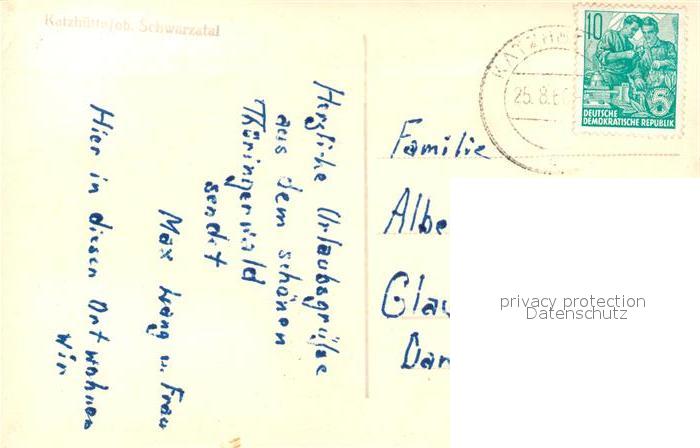 Katzhütte/ob. Schwarzatal
Herzliche Urlaubsgrüße
aus dem schönen
Thüringerwald
sendet
Max u. Frau
Hier in diesen Ort wohnen
wir
KATZHÜ
25.8.6
10
DEUTSCHE
DEMOKRATISCHE REPUBLIK
Familie
Albe
Glau
Dar
privacy protection
Datenschutz